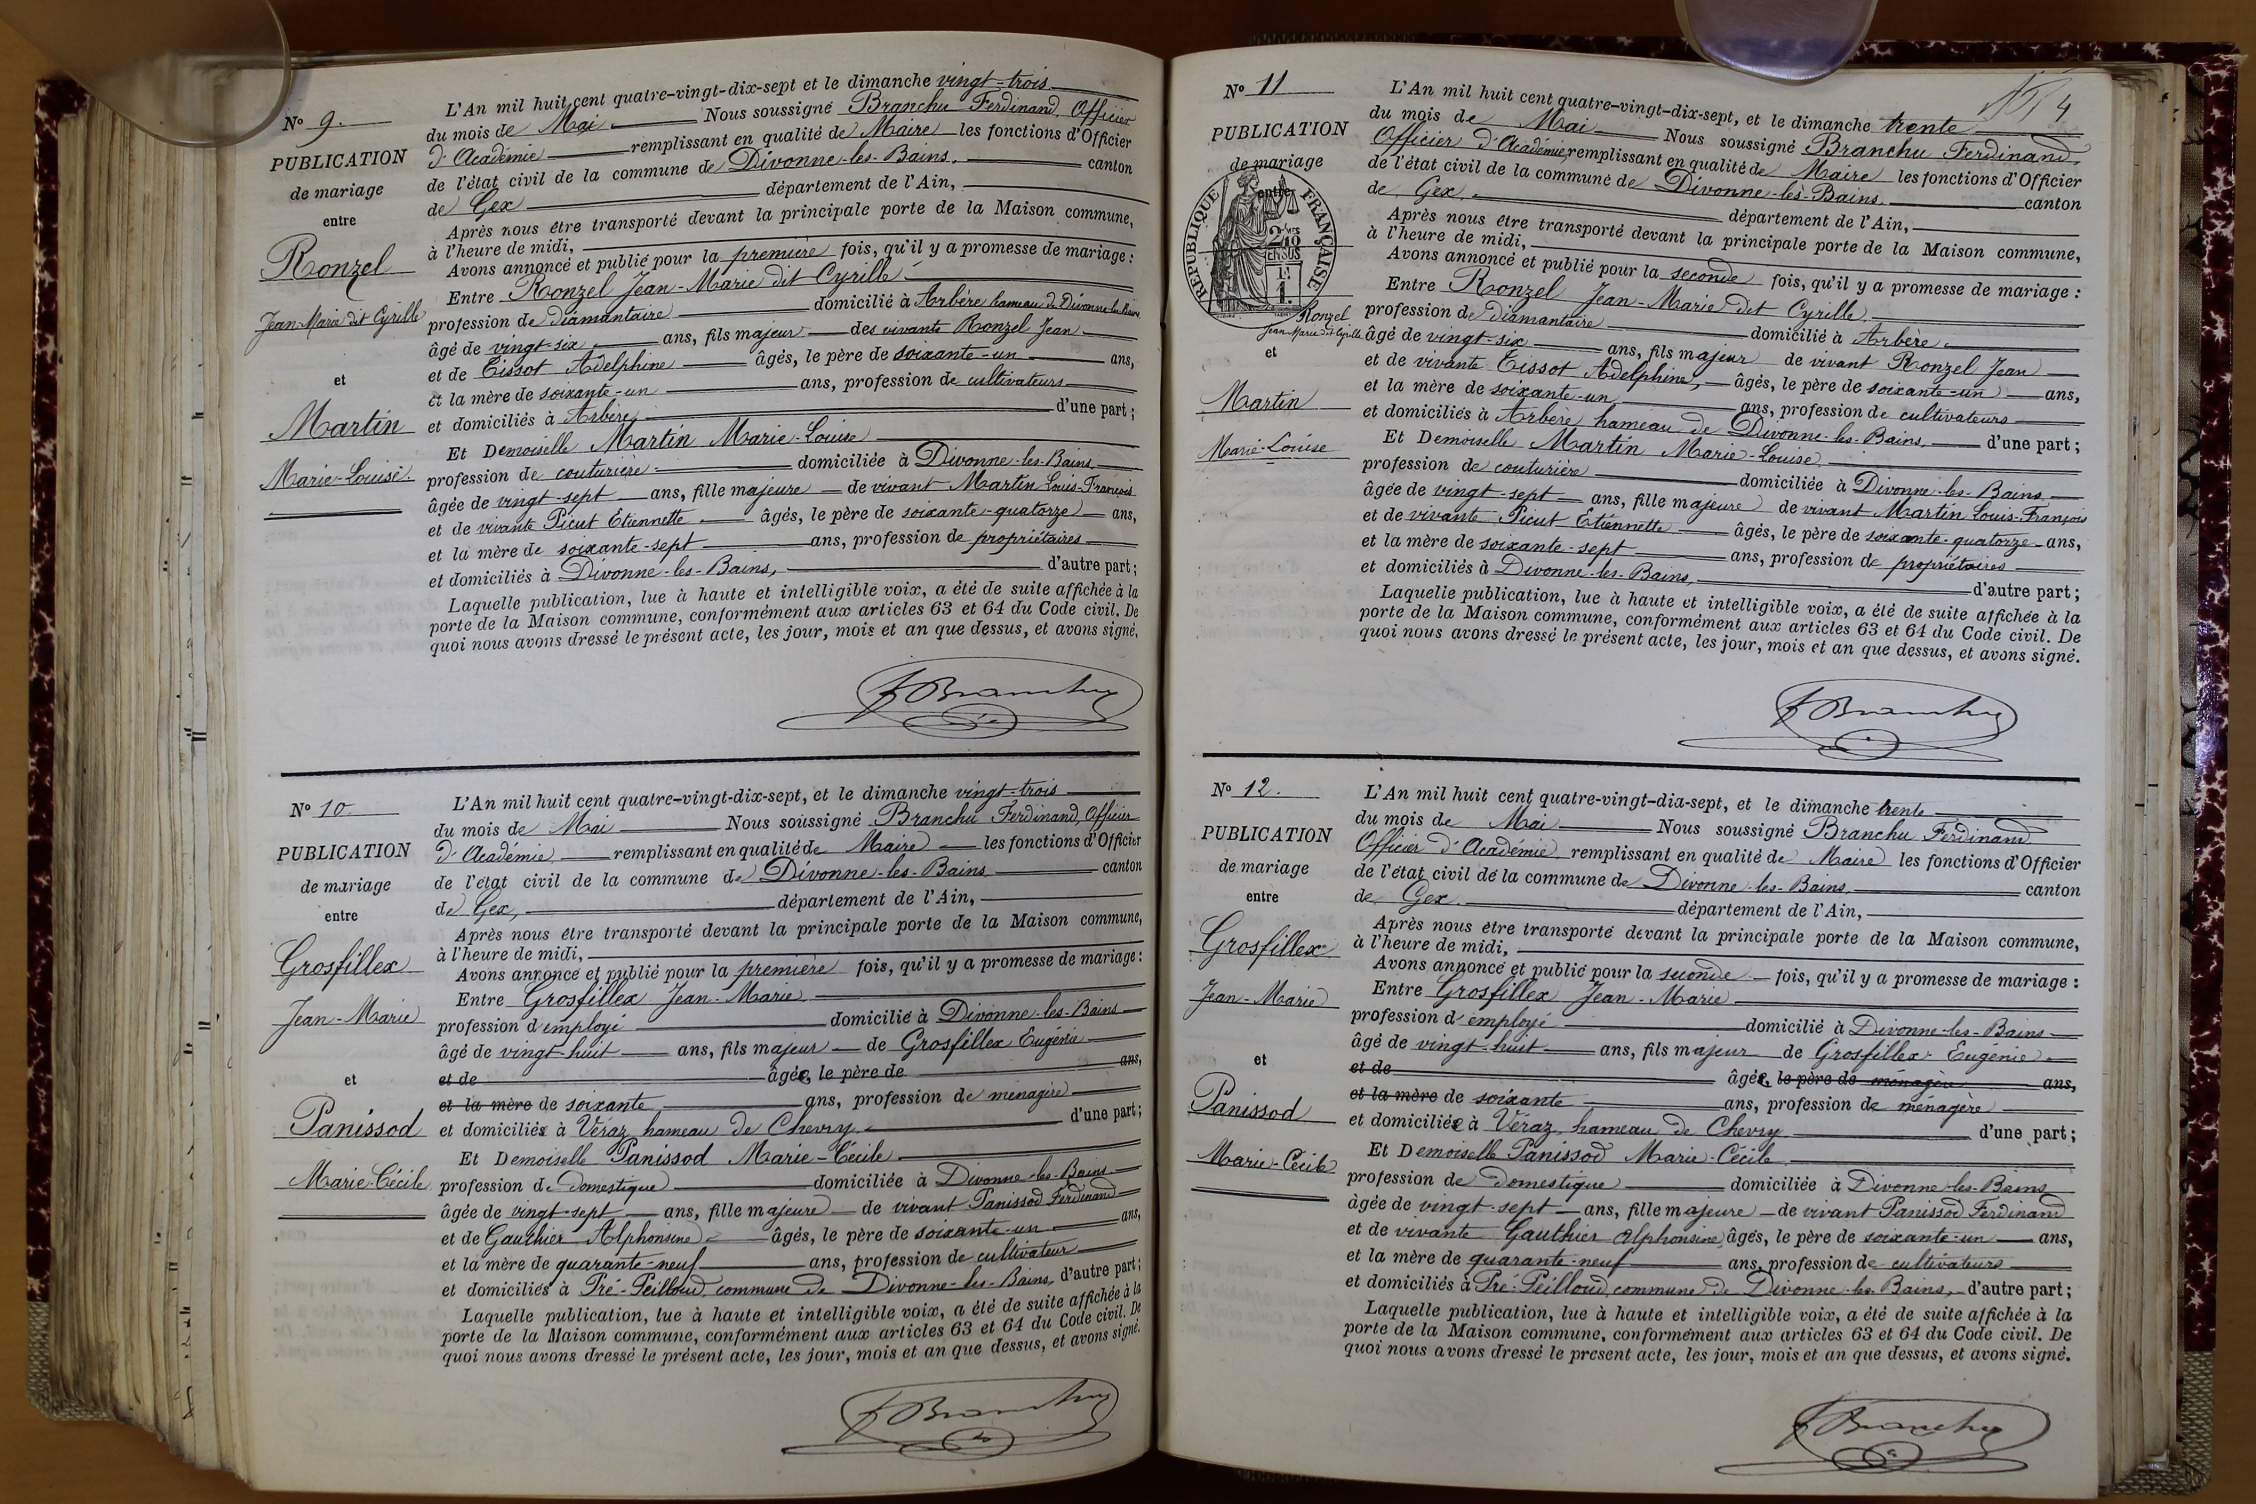 N° 9.
PUBLICATION
de mariage
entre
Ronzel
Jean-Marie dit Cyrille
et
Martin
Marie-Louise.
L'An mil huit cent quatre-vingt-dix-sept et le dimanche vingt-trois
du mois de Mai Nous soussigné Branchu Ferdinand, Officier
d'Académie remplissant en qualité de Maire les fonctions d'Officier
de l'état civil de la commune de Divonne-les-Bains. canton
de Gex département de l'Ain,
Après nous être transporté devant la principale porte de la Maison commune,
à l'heure de midi,
Avons annoncé et publié pour la première fois, qu'il y a promesse de mariage :
Entre Ronzel Jean-Marie dit Cyrille
profession de diamantaire domicilié à Arbère hameau de Divonne-les-Bains
âgé de vingt-six ans, fils majeur des vivants Ronzel Jean
et de Tissot Adelphine âgés, le père de soixante-un ans,
et la mère de soixante-un ans, profession de cultivateurs
et domiciliés à Arbère d'une part ;
Et Demoiselle Martin Marie-Louise
profession de couturière domiciliée à Divonne-les-Bains
âgée de vingt-sept ans, fille majeure de vivant Martin Louis-François
et de vivante Picut Étiennette âgés, le père de soixante-quatorze ans,
et la mère de soixante-sept ans, profession de propriétaires
et domiciliés à Divonne-les-Bains, d'autre part ;
Laquelle publication, lue à haute et intelligible voix, a été de suite affichée à la
porte de la Maison commune, conformément aux articles 63 et 64 du Code civil. De
quoi nous avons dressé le présent acte, les jour, mois et an que dessus, et avons signé.
F Branchu
N° 10
PUBLICATION
de mariage
entre
Grosfillex
Jean-Marie
et
Panissod
Marie-Cécile
L'An mil huit cent quatre-vingt-dix-sept, et le dimanche vingt-trois
du mois de Mai Nous soussigné Branchu Ferdinand, Officier
d'Académie remplissant en qualité de Maire les fonctions d'Officier
de l'état civil de la commune de Divonne-les-Bains canton
de Gex, département de l'Ain,
Après nous être transporté devant la principale porte de la Maison commune,
à l'heure de midi,
Avons annoncé et publié pour la première fois, qu'il y a promesse de mariage :
Entre Grosfillex Jean-Marie
profession d'employé domicilié à Divonne-les-Bains
âgé de vingt-huit ans, fils majeur de Grosfillex Eugénie
et de âgée, le père de ans,
et la mère de soixante ans, profession de ménagère
et domiciliée à Véraz hameau de Chevry d'une part ;
Et Demoiselle Panissod Marie-Cécile
profession de domestique domiciliée à Divonne-les-Bains
âgée de vingt-sept ans, fille majeure de vivant Panissod Ferdinand
et de Gauthier Alphonsine âgés, le père de soixante-un ans,
et la mère de quarante-neuf ans, profession de cultivateur
et domiciliés à Pré-Peilloud, commune de Divonne-les-Bains, d'autre part ;
Laquelle publication, lue à haute et intelligible voix, a été de suite affichée à la
porte de la Maison commune, conformément aux articles 63 et 64 du Code civil. De
quoi nous avons dressé le présent acte, les jour, mois et an que dessus, et avons signé.
F Branchu
4
N° 11
PUBLICATION
de mariage
entre
RÉPUBLIQUE FRANÇAISE
2/10 EN SUS
Ronzel
Jean-Marie dit Cyrille
et
Martin
Marie-Louise
L'An mil huit cent quatre-vingt-dix-sept, et le dimanche trente
du mois de Mai Nous soussigné Branchu Ferdinand,
Officier d'Académie, remplissant en qualité de Maire les fonctions d'Officier
de l'état civil de la commune de Divonne-les-Bains. canton
de Gex. département de l'Ain,
Après nous être transporté devant la principale porte de la Maison commune,
à l'heure de midi,
Avons annoncé et publié pour la seconde fois, qu'il y a promesse de mariage :
Entre Ronzel Jean-Marie dit Cyrille
profession de diamantaire domicilié à Arbère
âgé de vingt-six ans, fils majeur de vivant Ronzel Jean
et de vivante Tissot Adelphine, âgés, le père de soixante-un ans,
et la mère de soixante-un ans, profession de cultivateurs
et domiciliés à Arbère hameau de Divonne-les-Bains d'une part ;
Et Demoiselle Martin Marie-Louise
profession de couturière domiciliée à Divonne-les-Bains
âgée de vingt-sept ans, fille majeure de vivant Martin Louis-François
et de vivante Picut Étiennette âgés, le père de soixante-quatorze ans,
et la mère de soixante-sept ans, profession de propriétaires
et domiciliés à Divonne-les-Bains, d'autre part ;
Laquelle publication, lue à haute et intelligible voix, a été de suite affichée à la
porte de la Maison commune, conformément aux articles 63 et 64 du Code civil. De
quoi nous avons dressé le présent acte, les jour, mois et an que dessus, et avons signé.
F Branchu
N° 12.
PUBLICATION
de mariage
entre
Grosfillex
Jean-Marie
et
Panissod
Marie-Cécile
L'An mil huit cent quatre-vingt-dix-sept, et le dimanche trente
du mois de Mai Nous soussigné Branchu Ferdinand
Officier d'Académie remplissant en qualité de Maire les fonctions d'Officier
de l'état civil de la commune de Divonne-les-Bains. canton
de Gex. département de l'Ain,
Après nous être transporté devant la principale porte de la Maison commune,
à l'heure de midi,
Avons annoncé et publié pour la seconde fois, qu'il y a promesse de mariage :
Entre Grosfillex Jean-Marie
profession d'employé domicilié à Divonne-les-Bains
âgé de vingt-huit ans, fils majeur de Grosfillex Eugénie
et de âgée, le père de ménagère ans,
et la mère de soixante ans, profession de ménagère
et domiciliée à Véraz hameau de Chevry d'une part ;
Et Demoiselle Panissod Marie-Cécile
profession de domestique domiciliée à Divonne-les-Bains
âgée de vingt-sept ans, fille majeure de vivant Panissod Ferdinand
et de vivante Gauthier Alphonsine, âgés, le père de soixante-un ans,
et la mère de quarante-neuf ans, profession de cultivateurs
et domiciliés à Pré-Peilloud, commune de Divonne-les-Bains, d'autre part ;
Laquelle publication, lue à haute et intelligible voix, a été de suite affichée à la
porte de la Maison commune, conformément aux articles 63 et 64 du Code civil. De
quoi nous avons dressé le présent acte, les jour, mois et an que dessus, et avons signé.
F Branchu